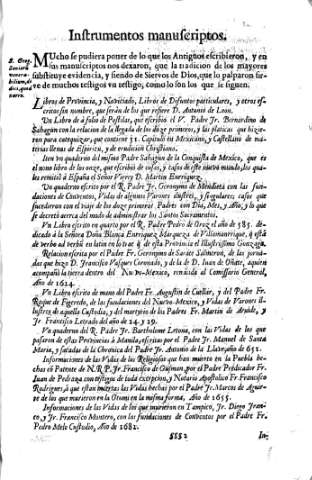 Instrumentos manuscriptos.
MUcho se pudiera poner de lo que los Antiguos escribieron, y en
sus manuscriptos nos dexaron, que la tradicion de los mayores
substituye evidencia, y siendo de Siervos de Dios, que lo palparon sir-
ve de muchos testigos un testigo, como lo son los que se siguen.
Libros de Provincia, y Noviciado, Libros de Difuntos particulares, y otros es-
critos sin nombre, que serán de los que refiere D. Antonio de Leon.
Un Libro de á folio de Postilas, que escribió el V. Padre Fr. Bernardino de
Sahagun con la relacion de la llegada de los doze primeros, y las platicas que hizie-
ron para catequizar, que contiene 31. Capitulos en Mexicano, y Castellano de ma-
terias llenas de Espiritu, y de erudicion Christiana.
Iten un quaderno del mismo Padre Sahagun de la Conquista de Mexico, que es
el nono libro de los onze, que escribió de cosas, y casos de este nuevo mundo, los qua-
les remitió á España el Señor Virrey D. Martin Enrriquez.
Un quaderno escrito por el R. Padre Fr. Geronimo de Mendieta con las fun-
daciones de Conventos, Vidas de algunos Varones ilustres, y singulares; casos que
sucedieron con el viaje de los doze primeros Padres con Dia, Mes, y Año, y lo que
se decretó acerca del modo de administrar los Santos Sacramentos.
Un Libro escrito en quarto por el R. Padre Pedro de Oroz el año de 585. de-
dicado á la Señora Doña Blanca Enrriquez Marqueza de Villamanrique, q està
de verbo ad verbũ en latin en lo q de esta Provincia el Illustrisimo Gonzaga.
Relacion escrita por el Padre Fr. Geronymo de Zarate Salmeron, de las jorna-
das que hizo D. Francisco Vasques Coronado, y de la de D. Juan de Oñate, aquien
acompañó la tierra dentro del Nuevo-Mexico, remitida al Comissario General,
Año de 1624.
Un Libro escrito de mano del Padre Fr. Augustin de Cuellar, y del Padre Fr.
Roque de Figueredo, de las fundaciones del Nuevo-Mexico, y Vidas de Varones il-
lustres de aquella Custodia, y del martyrio de los Padres Fr. Martin de Arvide, y
Fr. Francisco Letrado del año de 24. y 29.
Un quaderno del R. Padre Fr. Bartholome Letona, con las Vidas de los que
pasaron de estas Provincias á Manila, escritas por el Padre Fr. Manuel de Santa
Maria, y sacadas de la Chronica del Padre Fr. Antonio de la Llave, año de 652.
Informaciones de las Vidas de los Religiosos que han muerto en la Puebla he-
chas cõ Patente de N. R. P. Fr. Francisco de Guzman, por el Padre Predicador Fr.
Juan de Pedraza con testigos de toda excepcion, y Notario Apostolico Fr. Francisco
Rodrigues, á que estan insertas las Vidas hechas por el Padre Fr. Martin de Aguir-
re de los que murieron en la Otomi en la misma forma, Año de 1655.
Informaciones de las Vidas de los que murieron en Tampico, Fr. Diego Fran-
co, y Fr. Francisco Montero, con las fundaciones de Conventos por el Padre Fr.
Pedro Melo Custodio, Año de 1682.
In-